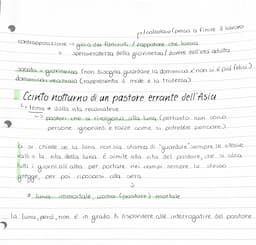 p/calzolaio (pensa a finire il lavoro
contrapposizione → gioia dei fanciulli / zappatore che lavora
→ spensieratezza della giovinezza / dovere dell'età adulta
sabato = giovinezza (non bisogna guardare la domenica x non si è più felici)
domenica = vecchiaia (rappresenta il male e la tristezza)
Canto notturno di un pastore errante dell'Asia
↳ tema = dalla vita
→ pastori che si rivolgono alla luna (pertanto non come
persone ignoranti e rozze come si potrebbe pensare)
si chiede se la luna non sia stanca di "guardare" sempre le stesse
valli e la vita della luna è simile alla vita del pastore, che si alza
tutti i giorni all'alba per portare nei campi sempre lo stesso
gregge, per poi riposarsi alla sera
luna = immortale, uomo (pastore) = mortale
la luna, però, non è in grado di rispondere alle interrogative del pastore